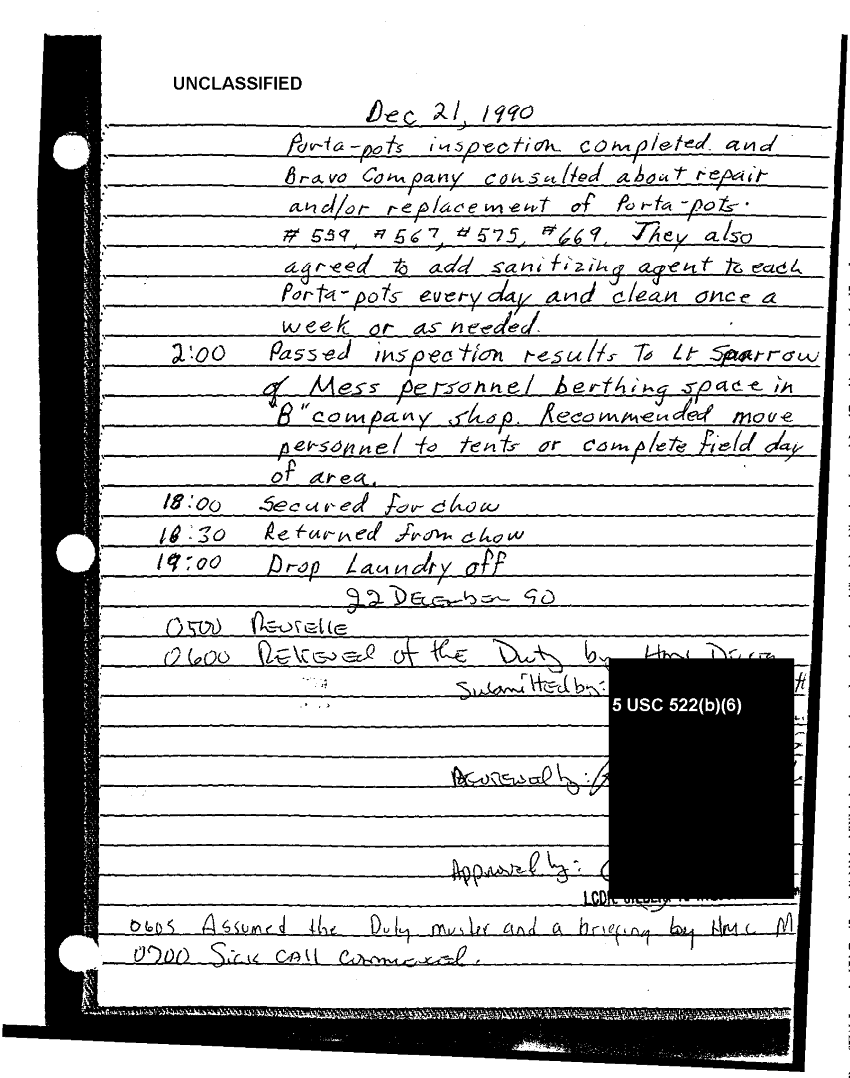 UNCLASSIFIED
Dec 21, 1990
Porta-pots inspection completed and
Bravo Company consulted about repair
and/or replacement of Porta-pots.
# 559, # 567, # 575, #669. They also
agreed to add sanitizing agent to each
Porta-pots everyday and clean once a
week or as needed.
2:00 Passed inspection results To Lt Sparrow
of Mess personnel berthing space in
"B" company shop. Recommended move
personnel to tents or complete field day
of area.
18:00 Secured for chow
18:30 Returned from chow
19:00 Drop Laundry off
22 December 90
0500 Reveille
0600 Relieved of the Duty by
Submitted by:
5 USC 522(b)(6)
Reviewed by:
Approved by:
LCDR
0605 Assumed the Duty muster and a briefing by HMC M
0700 Sick CALL Commenced.